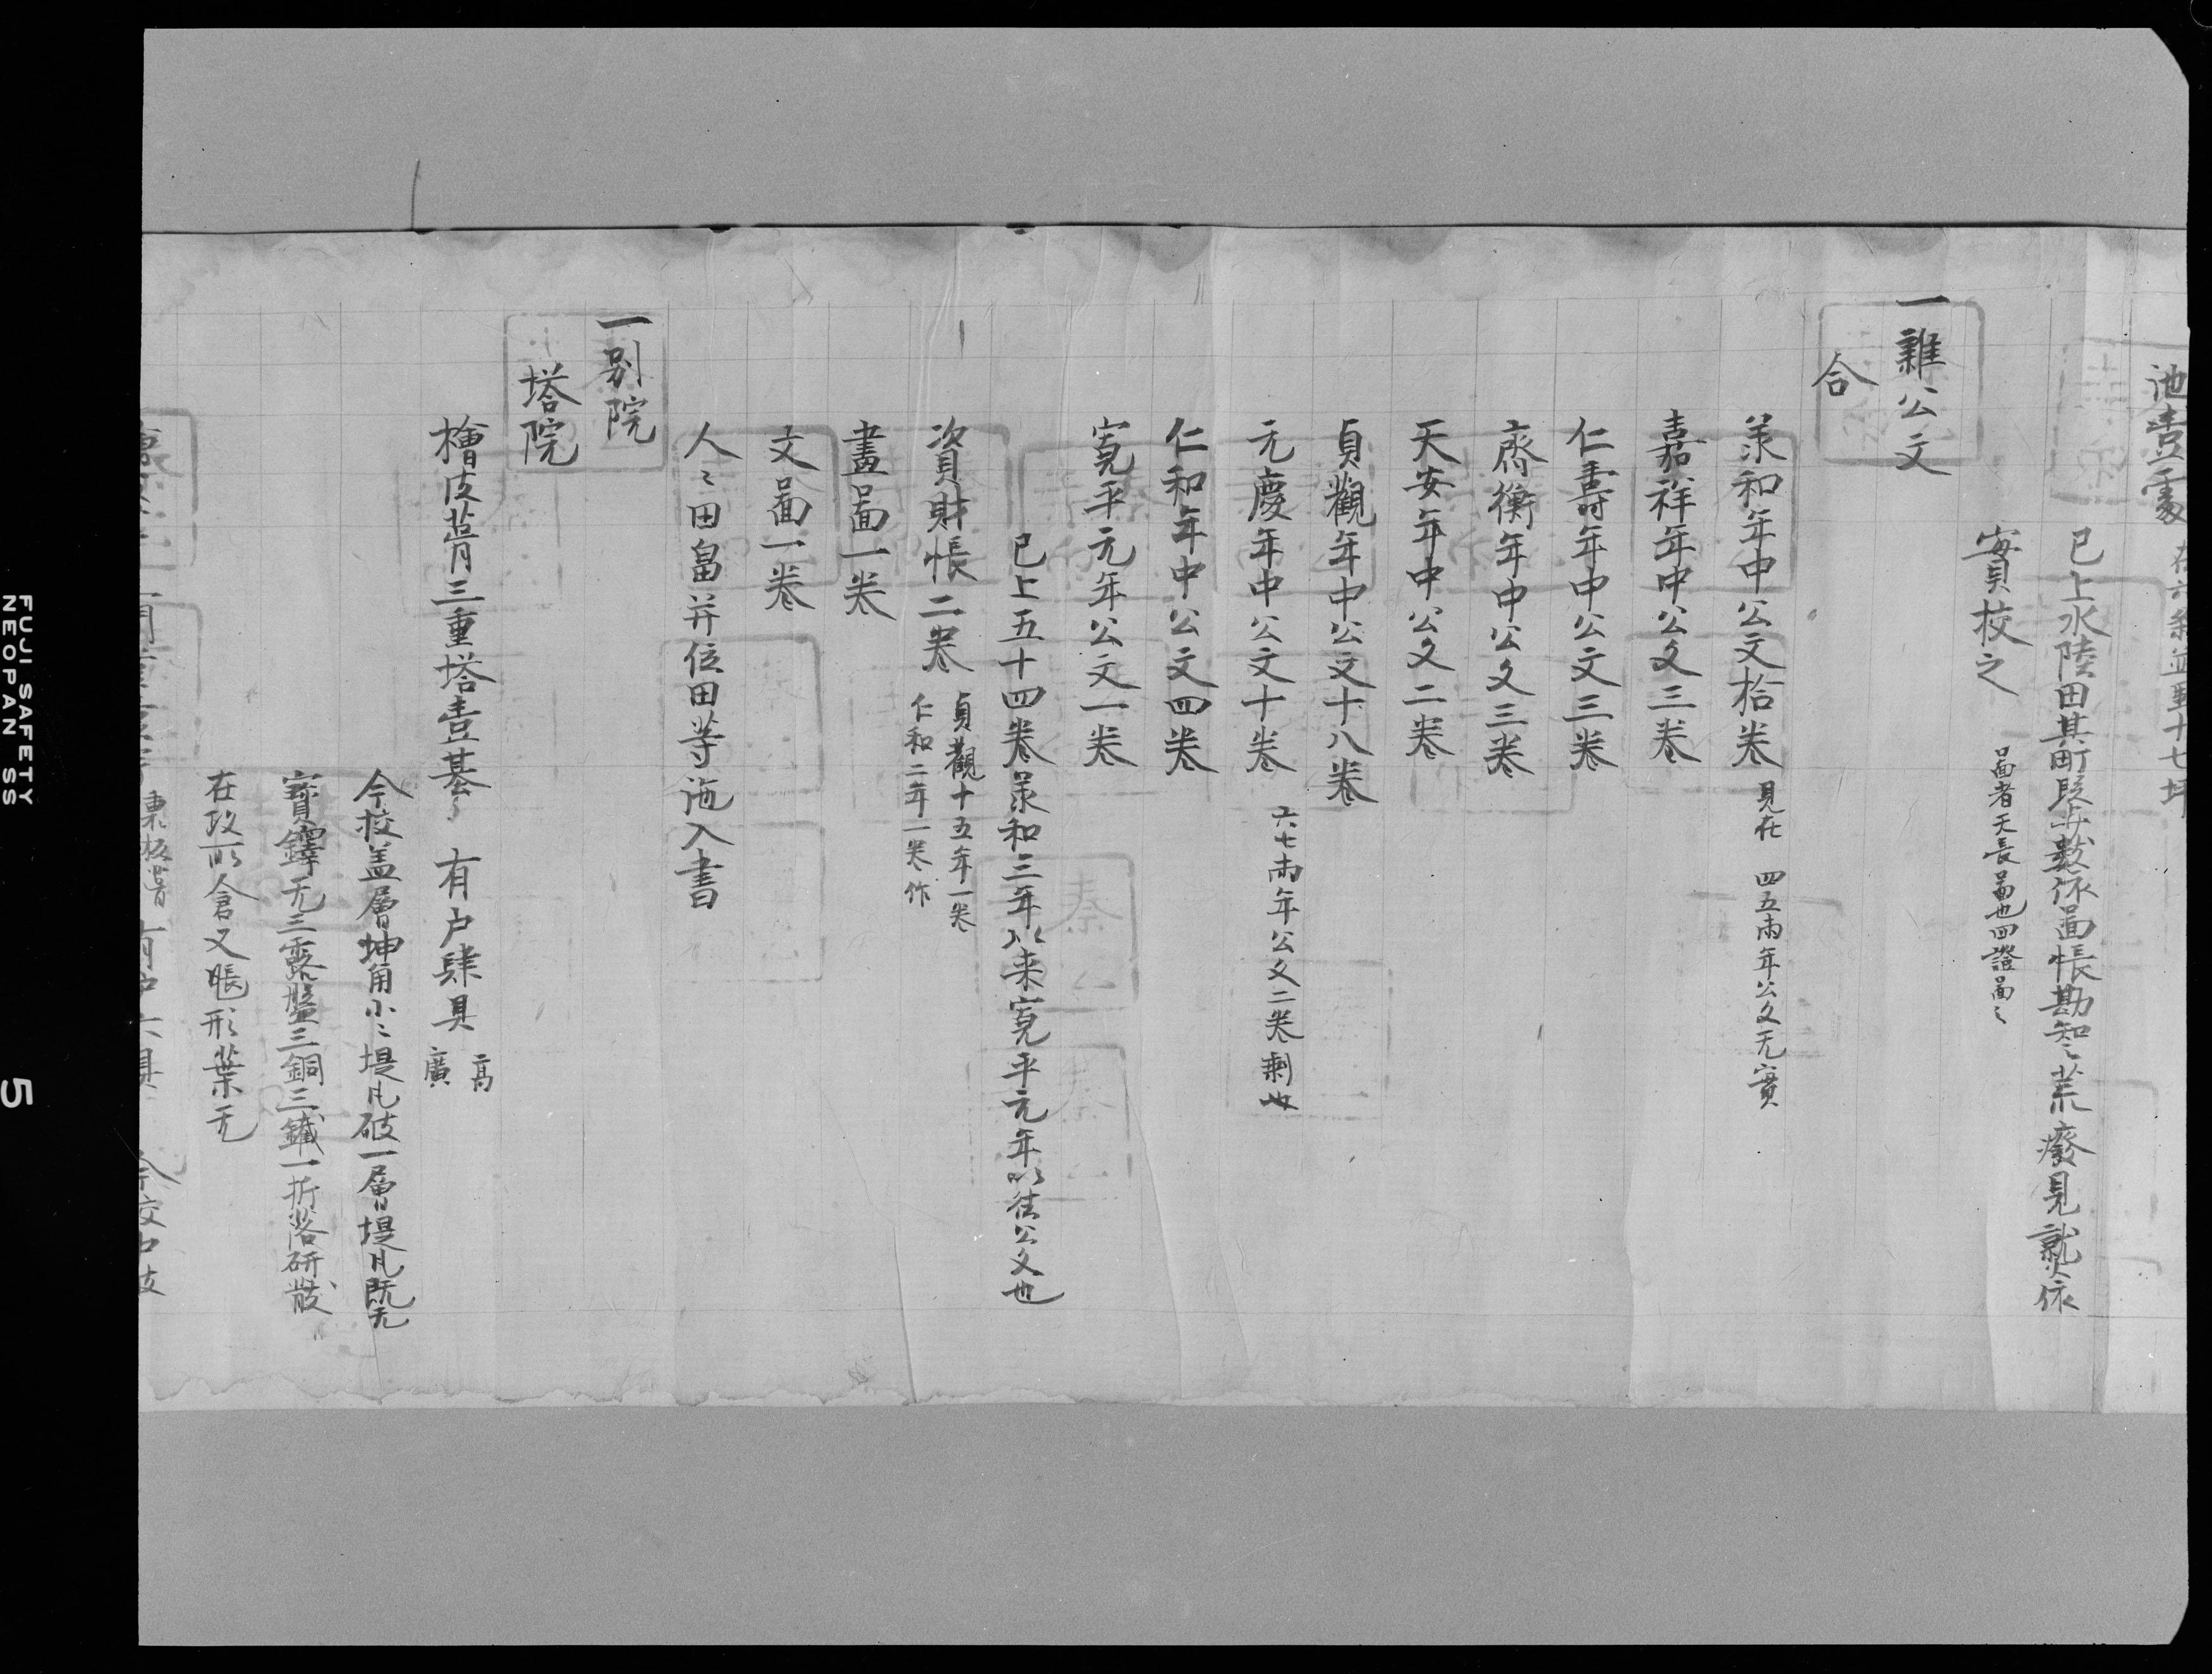 池壹處 在六條並里十七坪
已上水陸田其町段步數依啚帳勘知之荒廢見熟依
實校之 啚者天長啚也四證啚之
一雜公文
合
羕和年中公文拾卷 見在 四五兩年公文无實
嘉祥年中公文三卷
仁壽年中公文三卷
齊衡年中公文三卷
天安年中公文二卷
貞觀年中公文十八卷
元慶年中公文十卷 六七兩年公文二卷剩也
仁和年中公文四卷
寬平元年公文一卷
已上五十四卷羕和三年以来寬平元年以往公文也
資財帳二卷 貞觀十五年一卷
仁和二年一卷作
畫啚一卷
文啚一卷
人々田畠并位田等施入書
一別院
塔院
檜皮葺三重塔壹基 有户肆具 高
廣
今校盖層坤角小々堤凡破一層堤凡既无
寶鐸无三露盤三銅三鐵一折落研散
在政所倉又帳形葉无
FUJI SAFETY
NEOPAN SS
5